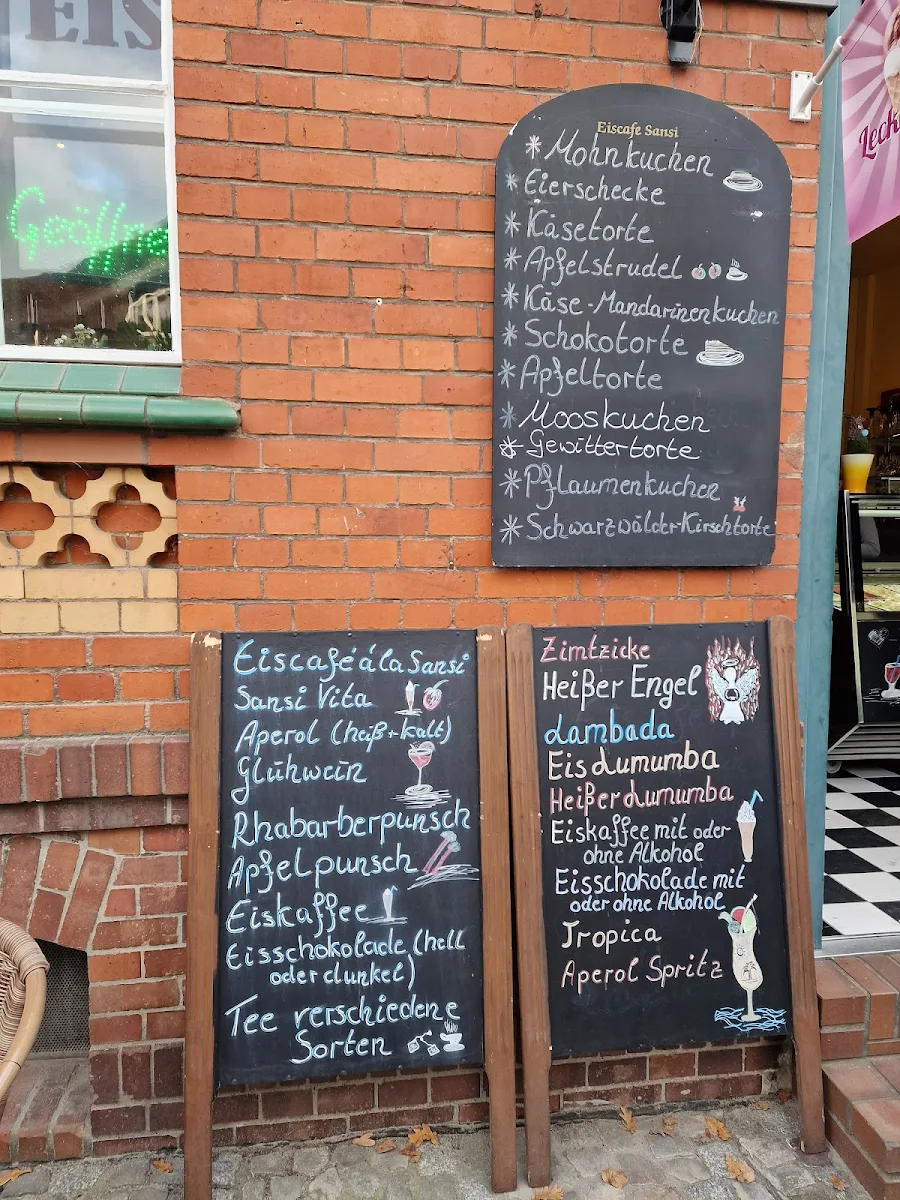 EIS
Geöffne
Leck
Eiscafe Sansi
Mohnkuchen
Eierschecke
Käsetorte
Apfelstrudel
Käse-Mandarinenkuchen
Schokotorte
Apfeltorte
Mooskuchen
Gewittertorte
Pflaumenkuchen
Schwarzwälder-Kirschtorte
Eiscafé á la Sansi
Sansi Vita
Aperol (heiß+kalt)
Glühwein
Rhabarberpunsch
Apfelpunsch
Eiskaffee
Eisschokolade (hell
oder dunkel)
Tee verschiedene
Sorten
Zimtzicke
Heißer Engel
Lambada
Eis Lumumba
Heißer Lumumba
Eiskaffee mit oder
ohne Alkohol
Eisschokolade mit
oder ohne Alkohol
Tropica
Aperol Spritz